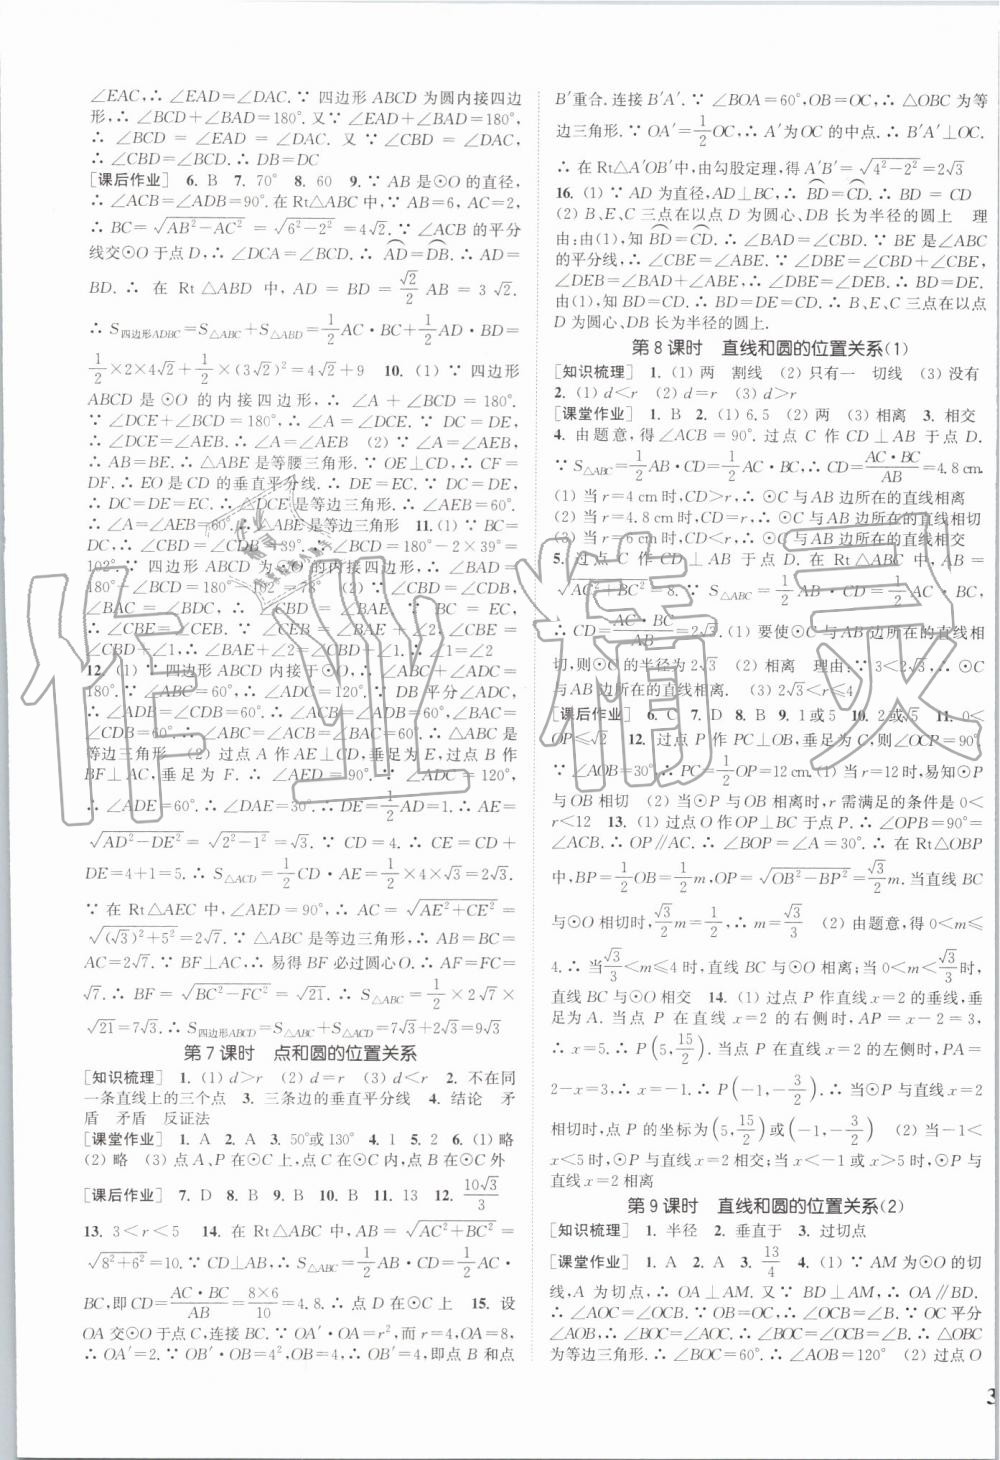 ∠EAC,∴ ∠EAD=∠DAC.∵ 四边形 ABCD 为圆内接四边
形,∴ ∠BCD+∠BAD=180°.又∵ ∠EAD+∠BAD=180°,
∴ ∠BCD = ∠EAD = ∠DAC. 又 ∵ ∠CBD = ∠DAC,
∴ ∠CBD=∠BCD.∴ DB=DC
[课后作业] 6. B 7. 70° 8. 60 9. ∵ AB 是⊙O 的直径,
∴ ∠ACB=∠ADB=90°.在 Rt△ABC 中,∵ AB=6,AC=2,
∴ BC=√(AB²−AC²)=√(6²−2²)=4√2.∵ ∠ACB 的平分
线交⊙O 于点 D,∴ ∠DCA=∠BCD.∴ AD=DB.∴ AD=
BD. ∴ 在 Rt △ABD 中, AD = BD = √2/2 AB = 3√2.
∴ S四边形ADBC=S△ABC+S△ABD=1/2 AC·BC+1/2 AD·BD=
1/2×2×4√2+1/2×(3√2)²=4√2+9 10. (1) ∵ 四边形
ABCD 是 ⊙O 的内接四边形,∴ ∠A + ∠BCD = 180°.
∵ ∠DCE+∠BCD=180°,∴ ∠A=∠DCE.∵ DC=DE,
∴ ∠DCE=∠AEB.∴ ∠A=∠AEB (2) ∵ ∠A=∠AEB,
∴ AB=BE.∴ △ABE 是等腰三角形.∵ OE⊥CD,∴ CF=
DF.∴ EO 是 CD 的垂直平分线.∴ DE=EC.∵ DC=DE,
∴ DC=DE=EC.∴ △DCE 是等边三角形.∴ ∠AEB=60°.
∴ ∠A=∠AEB=60°.∴ △ABE 是等边三角形 11. (1) ∵ BC=
DC,∴ ∠CBD=∠CDB=39°.∴ ∠BCD=180°−2∠CBD=
102°.∵ 四边形 ABCD 为⊙O 的内接四边形,∴ ∠BAD=
180°−∠BCD=180°−102°=78° (2) ∵ ∠CBD=∠CDB,
∠BAC = ∠CDB, ∴ ∠CBD = ∠BAC. ∵ EC = BC,
∴ ∠CEB=∠CBE.∵ ∠CEB=∠BAE+∠2,∠CBE=
∠CBD+∠1,∴ ∠BAE+∠2=∠CBD+∠1.∴ ∠1=∠2
12. (1) ∵ 四边形 ABCD 内接于⊙O,∴ ∠ABC+∠ADC=
180°.∵ ∠ABC=60°,∴ ∠ADC=120°.∵ DB 平分∠ADC,
∴ ∠ADE=∠CDB=60°.∴ ∠ACB=∠ADB=60°,∠BAC=
∠CDB=60°.∴ ∠ABC=∠ACB=∠BAC=60°.∴ △ABC 是
等边三角形 (2) 过点 A 作 AE⊥CD,垂足为 E,过点 B 作
BF⊥AC,垂足为 F.∴ ∠AED=90°.∵ ∠ADC = 120°,
∴ ∠ADE=60°.∴ ∠DAE=30°.∴ DE=1/2 AD=1.∴ AE=
√(AD²−DE²)=√(2²−1²)=√3.∵ CD=4,∴ CE=CD+
DE=4+1=5.∴ S△ACD=1/2 CD·AE=1/2×4×√3=2√3.
∵ 在 Rt△AEC 中,∠AED=90°,∴ AC=√(AE²+CE²)=
√((√3)²+5²)=2√7.∵ △ABC 是等边三角形,∴ AB=BC=
AC=2√7.∵ BF⊥AC,∴ 易得 BF 必过圆心 O.∴ AF=FC=
√7.∴ BF=√(BC²−FC²)=√21.∴ S△ABC=1/2×2√7×
√21=7√3.∴ S四边形ABCD=S△ABC+S△ACD=7√3+2√3=9√3
第 7 课时 点和圆的位置关系
[知识梳理] 1. (1) d>r (2) d=r (3) d<r 2. 不在同
一条直线上的三个点 3. 三条边的垂直平分线 4. 结论 矛
盾 矛盾 反证法
[课堂作业] 1. A 2. A 3. 50°或130° 4. 1 5. 2 6. (1) 略
(2) 略 (3) 点 A、P 在⊙C 上,点 D 在⊙C 内,点 B 在⊙C 外
[课后作业] 7. D 8. B 9. B 10. B 11. 13 12. 10√3/3
13. 3<r<5 14. 在 Rt△ABC 中,AB=√(AC²+BC²)=
√(8²+6²)=10.∵ CD⊥AB,∴ S△ABC=1/2 AB·CD=1/2 AC·
BC,即 CD=AC·BC/AB=8×6/10=4.8.∴ 点 D 在⊙C 上 15. 设
OA 交⊙O 于点 C,连接 BC.∵ OA′·OA=r²,而 r=4,OA=8,
∴ OA′=2.∵ OB′·OB=4²,OB=4,∴ OB′=4,即点 B 和点
B′重合.连接 B′A′.∵ ∠BOA=60°,OB=OC,∴ △OBC 为等
边三角形.∵ OA′=1/2 OC,∴ A′为 OC 的中点.∴ B′A′⊥OC.
∴ 在 Rt△A′OB′中,由勾股定理,得 A′B′=√(4²−2²)=2√3
16. (1) ∵ AD 为直径,AD⊥BC,∴ BD=CD.∴ BD = CD
(2) B、E、C 三点在以点 D 为圆心、DB 长为半径的圆上 理
由:由(1),知 BD=CD.∴ ∠BAD=∠CBD.∵ BE 是∠ABC
的平分线,∴ ∠CBE=∠ABE.∵ ∠DBE=∠CBD+∠CBE,
∠DEB=∠BAD+∠ABE,∴ ∠DBE=∠DEB.∴ BD=DE.
由(1),知 BD=CD.∴ BD=DE=CD.∴ B、E、C 三点在以点
D 为圆心、DB 长为半径的圆上.
第 8 课时 直线和圆的位置关系(1)
[知识梳理] 1. (1) 两 割线 (2) 只有一 切线 (3) 没有
2. (1) d<r (2) d=r (3) d>r
[课堂作业] 1. B 2. (1) 6.5 (2) 两 (3) 相离 3. 相交
4. 由题意,得∠ACB=90°.过点 C 作 CD⊥AB 于点 D.
∵ S△ABC=1/2 AB·CD=1/2 AC·BC,∴ CD=AC·BC/AB=4.8 cm.
(1) 当 r=4 cm 时,CD>r,∴ ⊙C 与 AB 边所在的直线相离
(2) 当 r=4.8 cm 时,CD=r,∴ ⊙C 与 AB 边所在的直线相切
(3) 当 r=6 cm 时,CD<r,∴ ⊙C 与 AB 边所在的直线相交
5. 过点 C 作 CD⊥AB 于点 D.∴ AB=
√(AC²+BC²)=8.∵ S△ABC=1/2 AB·CD=1/2 AC·BC,
∴ CD=AC·BC/AB=2√3.(1) 要使⊙C 与 AB 边所在的直线相
切,则⊙C 的半径为 2√3 (2) 相离 理由:∵ 3<2√3,∴ ⊙C
与 AB 边所在的直线相离. (3) 2√3<r≤4
[课后作业] 6. C 7. D 8. B 9. 1 或 5 10. 2或√5 11. 0<
OP≤√2 12. 过点 P 作 PC⊥OB,垂足为 C,则∠OCP=90°.
∵ ∠AOB=30°,∴ PC=1/2 OP=12 cm.(1) 当 r=12 时,易知⊙P
与 OB 相切 (2) 当⊙P 与 OB 相离时,r 需满足的条件是 0<
r<12 13. (1) 过点 O 作 OP⊥BC 于点 P.∴ ∠OPB=90°=
∠ACB.∴ OP∥AC.∴ ∠BOP=∠A=30°.∴ 在 Rt△OBP
中,BP=1/2 OB=1/2 m,OP=√(OB²−BP²)=√3/2 m.当直线 BC
与⊙O 相切时,√3/2 m=1/2,∴ m=√3/3 (2) 由题意,得 0<m≤
4.∴ 当√3/3<m≤4 时,直线 BC 与⊙O 相离;当 0<m<√3/3时,
直线 BC 与⊙O 相交 14. (1) 过点 P 作直线 x=2 的垂线,垂
足为 A.当点 P 在直线 x=2 的右侧时,AP=x−2=3,
∴ x=5.∴ P(5,15/2).当点 P 在直线 x=2 的左侧时,PA=
2−x=3,∴ x=−1.∴ P(−1,−3/2).∴ 当⊙P 与直线 x=2
相切时,点 P 的坐标为(5,15/2)或(−1,−3/2) (2) 当−1<
x<5 时,⊙P 与直线 x=2 相交;当 x<−1 或 x>5 时,⊙P 与
直线 x=2 相离
第 9 课时 直线和圆的位置关系(2)
[知识梳理] 1. 半径 2. 垂直于 3. 过切点
[课堂作业] 1. A 2. A 3. 13/4 4. (1) ∵ AM 为⊙O 的切
线,A 为切点,∴ OA⊥AM.又∵ BD⊥AM,∴ OA∥BD.
∴ ∠AOC=∠OCB.∵ OB=OC,∴ ∠OCB=∠B.∵ OC 平分
∠AOB,∴ ∠BOC=∠AOC.∴ ∠BOC=∠B=∠OCB.∴ △OBC
为等边三角形.∴ ∠BOC=60°.∴ ∠AOB=120° (2) 过点 O
3
作业精灵